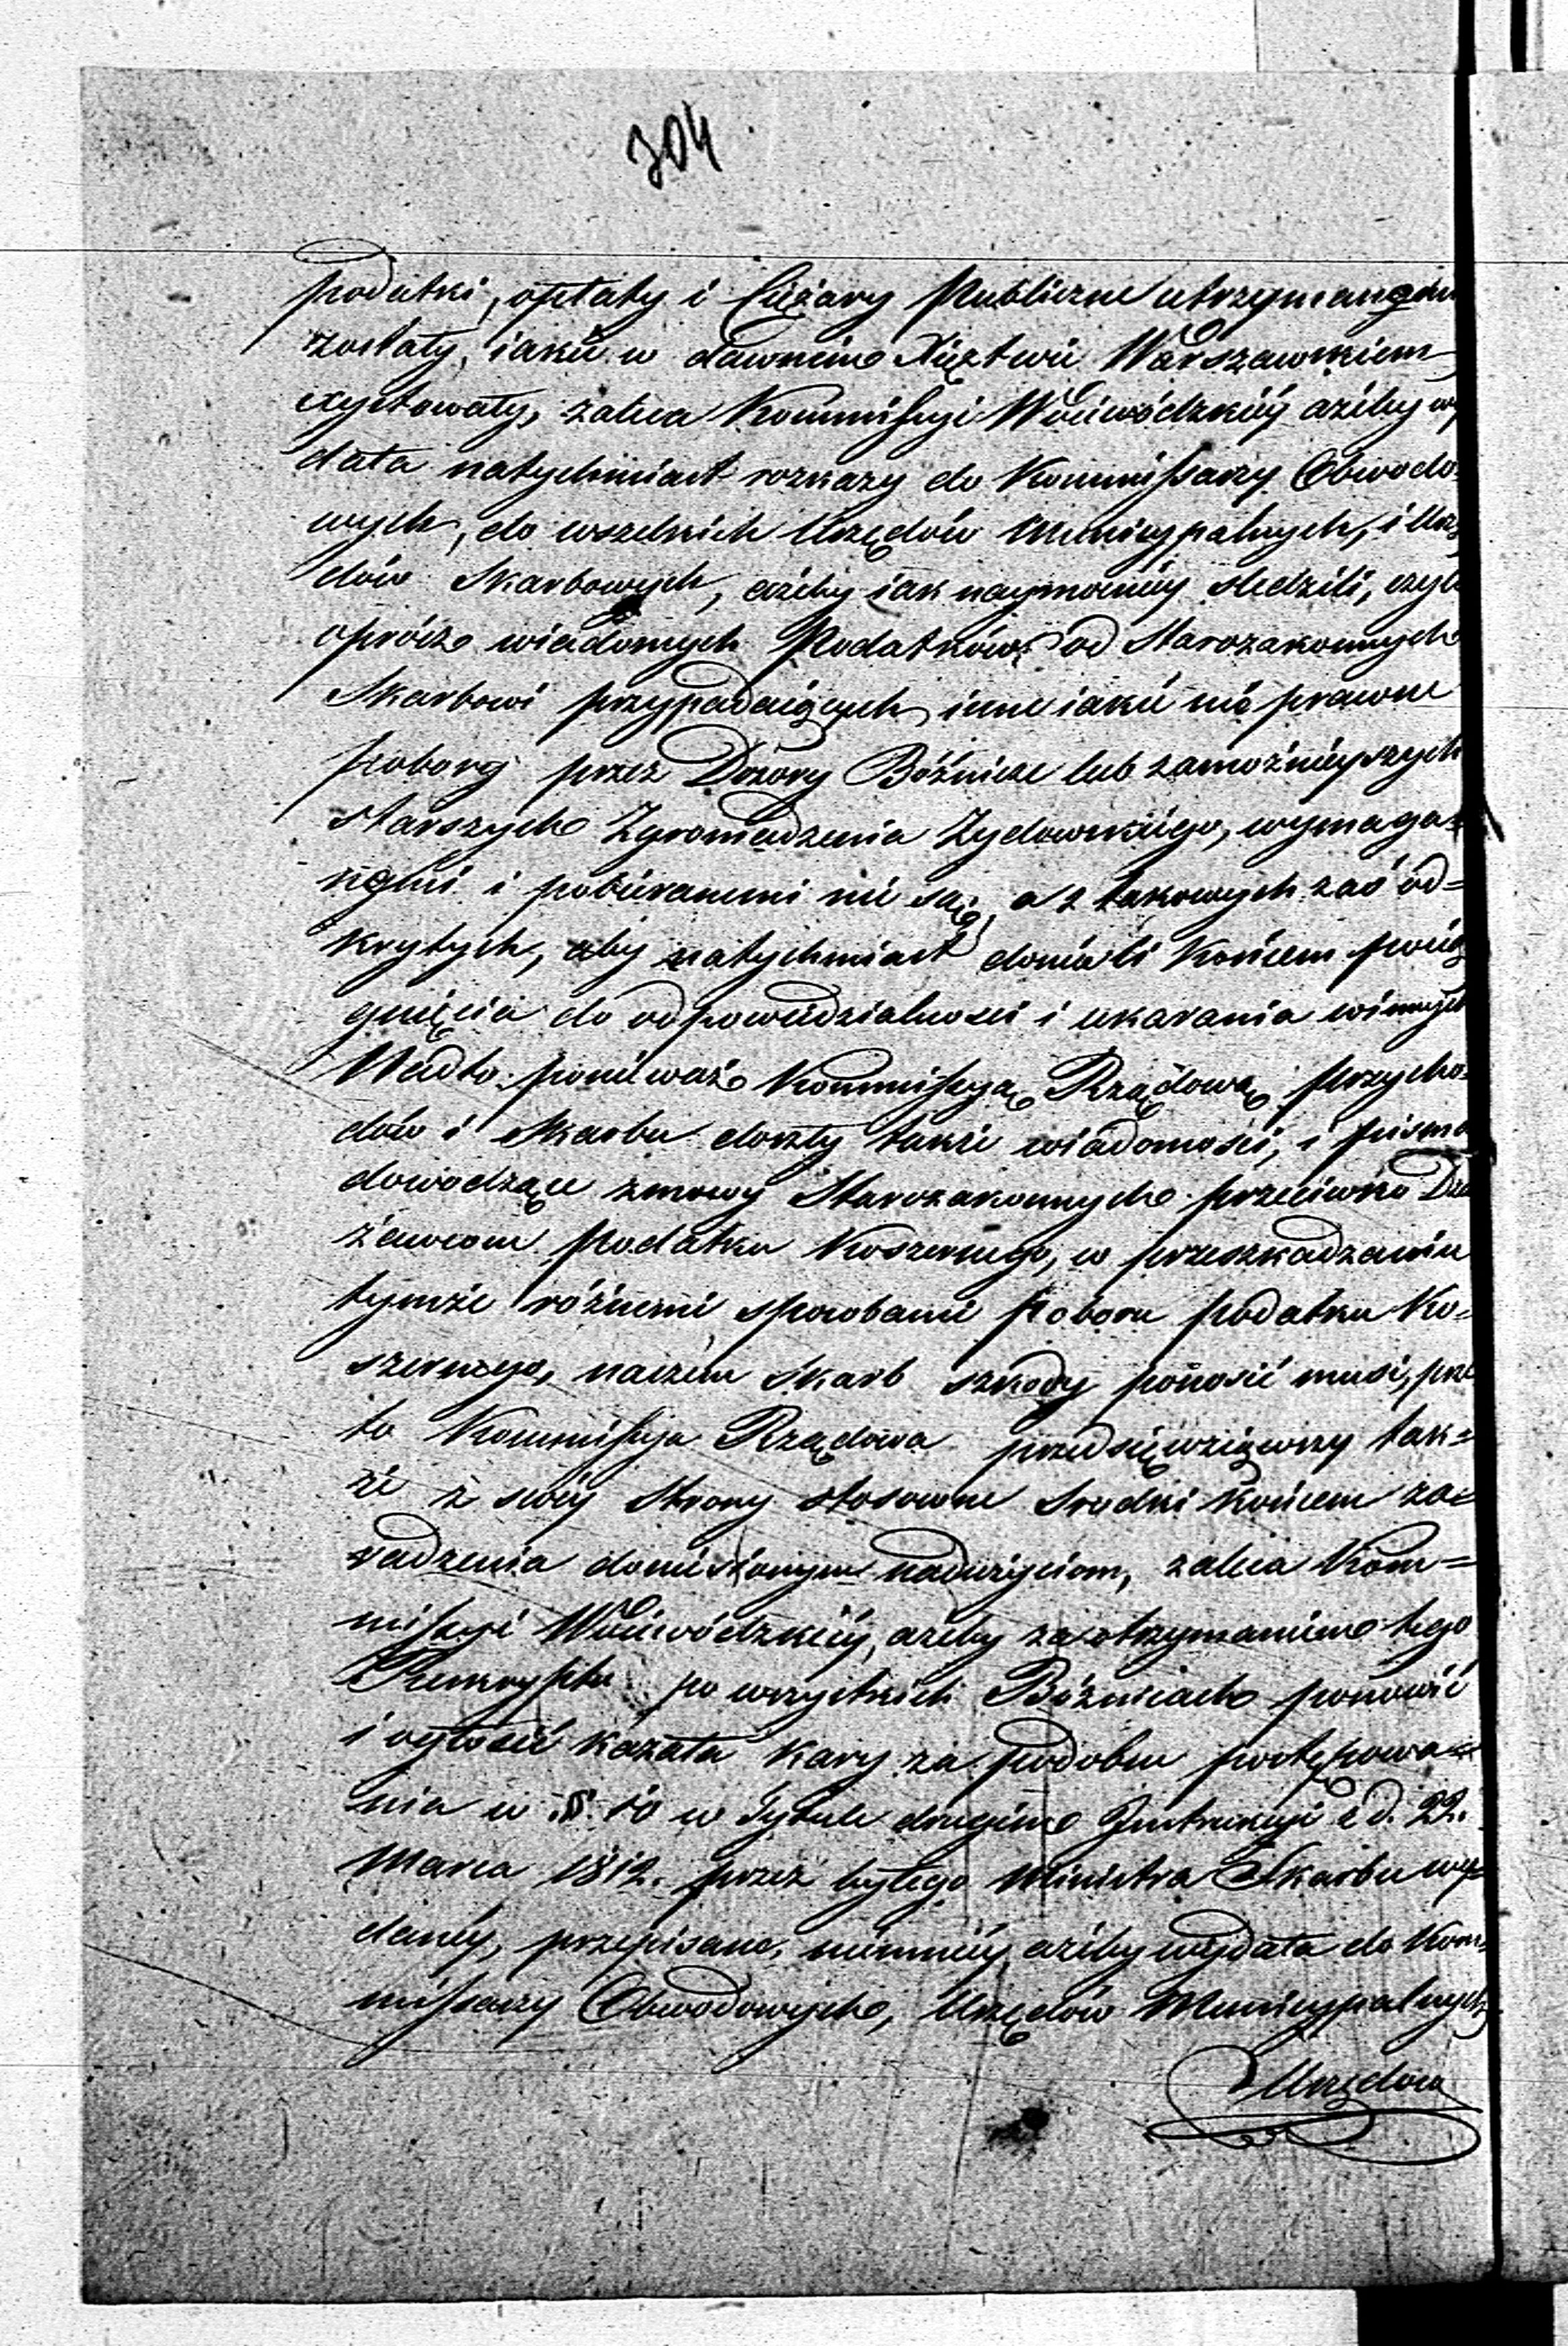 304
podatki, opłaty i Ciężary Publiczne utrzymanemi
zostały, iakie w dawnem Xięztwie Warszawskiem
exystowały, zaleca Kommissyi Woiewódzkiéy ażeby wy
dała natychmiast rozkazy do Kommissarzy Obwodo=
wych, do wszelkich Urzędów Municypalnych, i Urzę
dów Skarbowych, ażeby iak naymocniéy śledzili, czyli
oprócz wiadomych Podatków od Starozakonnych
Skarbowi przypadaiących inne iakie nie prawne
pobory przez Dozory Bóźnicze lub zamożnieyszych
Starszych Zgromadzenia Zydowskiego, wymaga=
nemi i pobieranemi nie są, a z takowych zaś od=
krytych, aby natychmiast donieśli końcem pocią
gnięcia do odpowiedzialności i ukarania winnych
Nadto ponieważ Kommissyą Rządową Przycho=
dów i Skarbu doszły także wiadomości, i pisma
dowodzące zmowy Starozakonnych przeciwko Dzie
żawcom Podatku Koszernego, w przeszkadzaniu
tymże różnemi sposobami poboru podatku Ko=
szernego, naczem Skarb szkody ponosić musi, prze
to Kommissya Rządowa przedsięwziąwszy tak=
że z swéy Strony stosowne Srodki końcem za=
radzenia doniesionym nadużyciom, zaleca Kom=
missyi Woiewódzkiéy, ażeby za otrzymaniem tego
Reskryptu po wszystkich Bóżnicach ponowić
i ogłosić kazała kary za podobne postępowa=
nia w §. 10 w Tytule drugim Instrukcyi z d. 22.
Marca 1812. przez byłego Ministra Skarbu wy=
daney, przepisane, niemniéy ażeby wydała do Kom=
missarzy Obwodowych, Urzędów Municypalnych
Urzędów